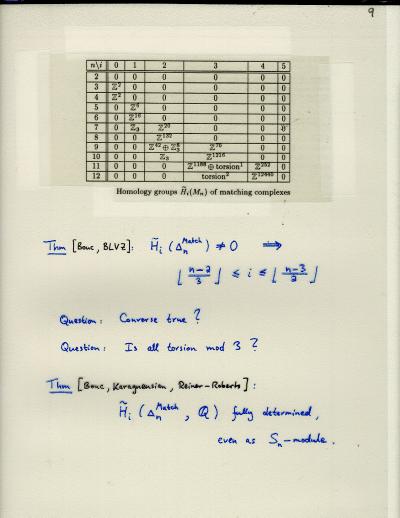 9
n\i 0 1 2 3 4 5
2 0 0 0 0 0 0
3 ℤ² 0 0 0 0 0
4 ℤ² 0 0 0 0 0
5 0 ℤ⁶ 0 0 0 0
6 0 ℤ¹⁶ 0 0 0 0
7 0 ℤ₃ ℤ²⁰ 0 0 0
8 0 0 ℤ¹³² 0 0 0
9 0 0 ℤ⁴² ⊕ ℤ₃⁸ ℤ⁷⁰ 0 0
10 0 0 ℤ₃ ℤ¹²¹⁶ 0 0
11 0 0 0 ℤ¹¹⁸⁸ ⊕ torsion¹ ℤ²⁵² 0
12 0 0 0 torsion² ℤ¹²⁴⁴⁰ 0
Homology groups H̃ᵢ(Mₙ) of matching complexes
Thm [Bouc, BLVZ]: H̃ᵢ (Δₙ^Match) ≠ 0 ⟹
⌊(n-2)/3⌋ ≤ i ≤ ⌊(n-3)/2⌋
Question: Converse true?
Question: Is all torsion mod 3?
Thm [Bouc, Karagueusian, Reiner-Roberts]:
H̃ᵢ (Δₙ^Match, ℚ) fully determined,
even as Sₙ-module.